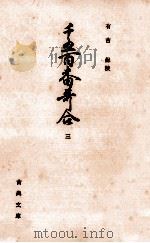 有吉 保校
千五百番哥合
三
古典文庫